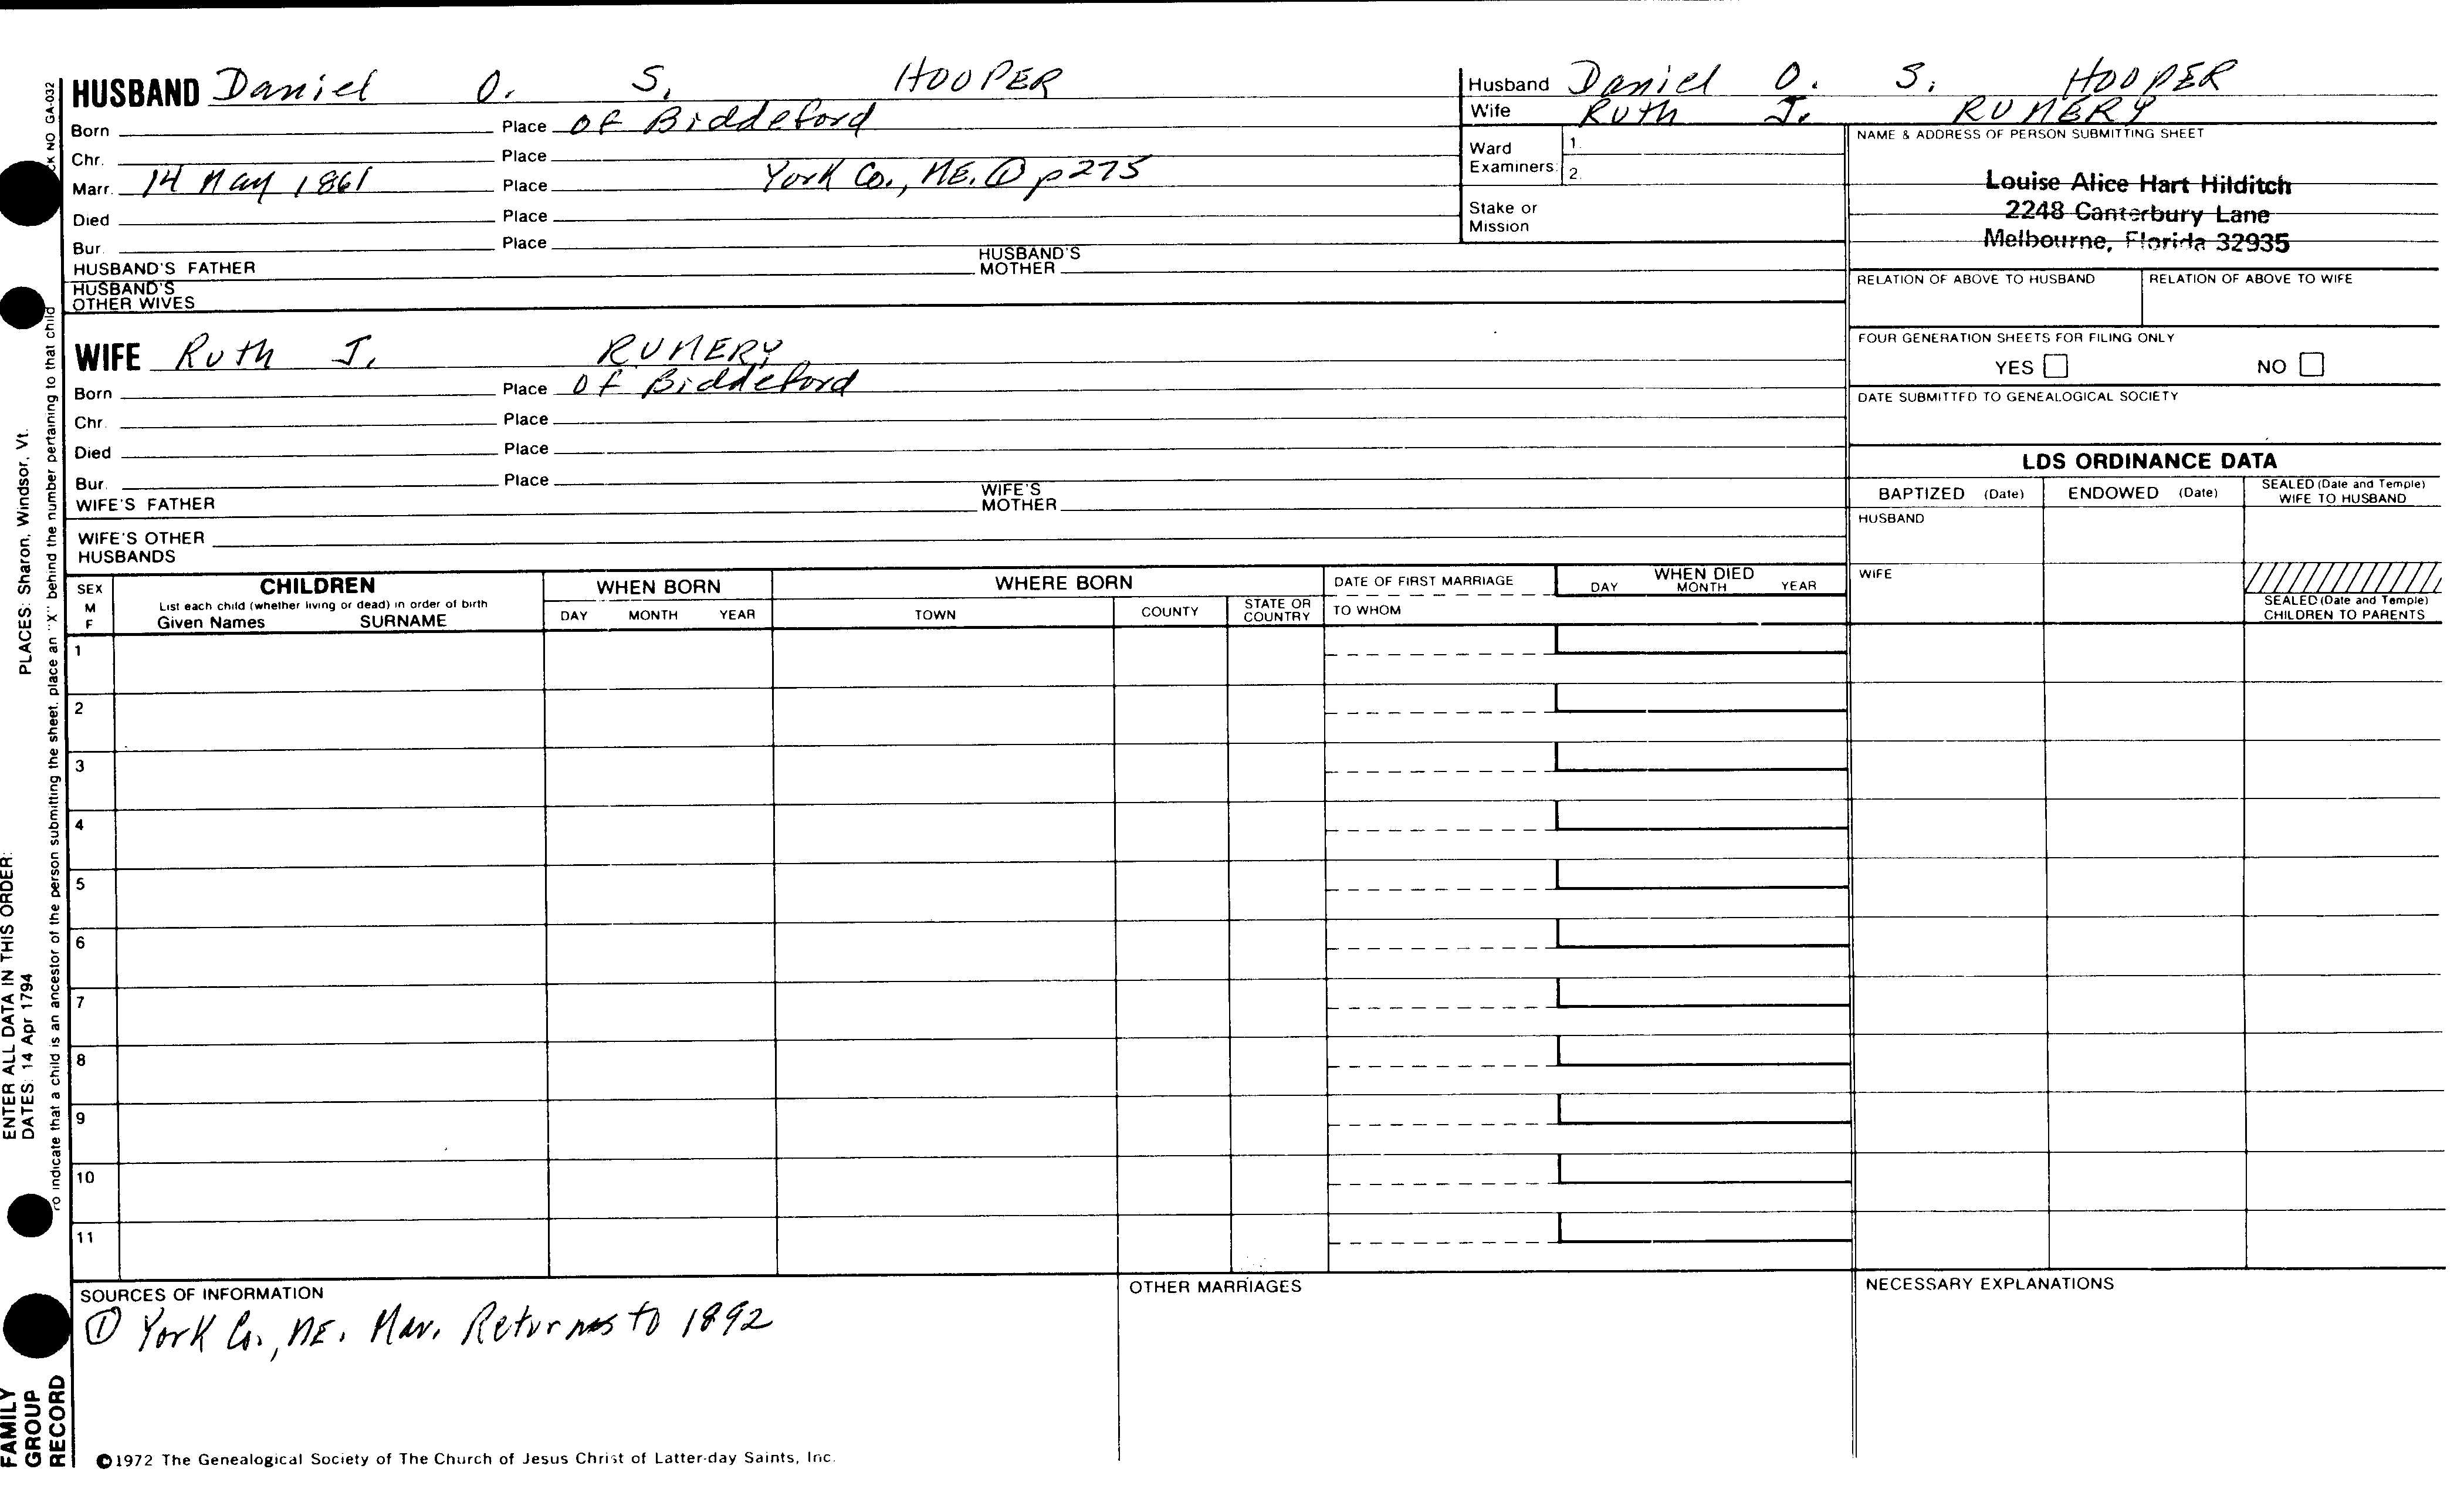 HUSBAND Daniel O. S. HOOPER
Born Place of Biddeford
Chr. Place
Marr. 14 May 1861 Place York Co., ME. ① p275
Died Place
Bur. Place
HUSBAND'S FATHER HUSBAND'S MOTHER
HUSBAND'S OTHER WIVES
WIFE Ruth J. RUMERY
Born Place of Biddeford
Chr. Place
Died Place
Bur. Place
WIFE'S FATHER WIFE'S MOTHER
WIFE'S OTHER HUSBANDS
Husband Daniel O. S. HOOPER
Wife Ruth J. RUMERY
Ward Examiners: 1. 2.
Stake or Mission
NAME & ADDRESS OF PERSON SUBMITTING SHEET
Louise Alice Hart Hilditch
2248 Canterbury Lane
Melbourne, Florida 32935
RELATION OF ABOVE TO HUSBAND RELATION OF ABOVE TO WIFE
FOUR GENERATION SHEETS FOR FILING ONLY
YES NO
DATE SUBMITTED TO GENEALOGICAL SOCIETY
LDS ORDINANCE DATA
BAPTIZED (Date) ENDOWED (Date) SEALED (Date and Temple) WIFE TO HUSBAND
HUSBAND
WIFE
SEALED (Date and Temple) CHILDREN TO PARENTS
SEX M F
CHILDREN
List each child (whether living or dead) in order of birth
Given Names SURNAME
WHEN BORN
DAY MONTH YEAR
WHERE BORN
TOWN COUNTY STATE OR COUNTRY
DATE OF FIRST MARRIAGE
TO WHOM
WHEN DIED
DAY MONTH YEAR
1
2
3
4
5
6
7
8
9
10
11
SOURCES OF INFORMATION
① York Co., ME. Mar. Returns to 1892
OTHER MARRIAGES
NECESSARY EXPLANATIONS
©1972 The Genealogical Society of The Church of Jesus Christ of Latter-day Saints, Inc.
FAMILY
GROUP
RECORD
ENTER ALL DATA IN THIS ORDER:
DATES: 14 Apr 1794 PLACES: Sharon, Windsor, Vt.
To indicate that a child is an ancestor of the person submitting the sheet, place an "X" behind the number pertaining to that child
CK NO GA-032